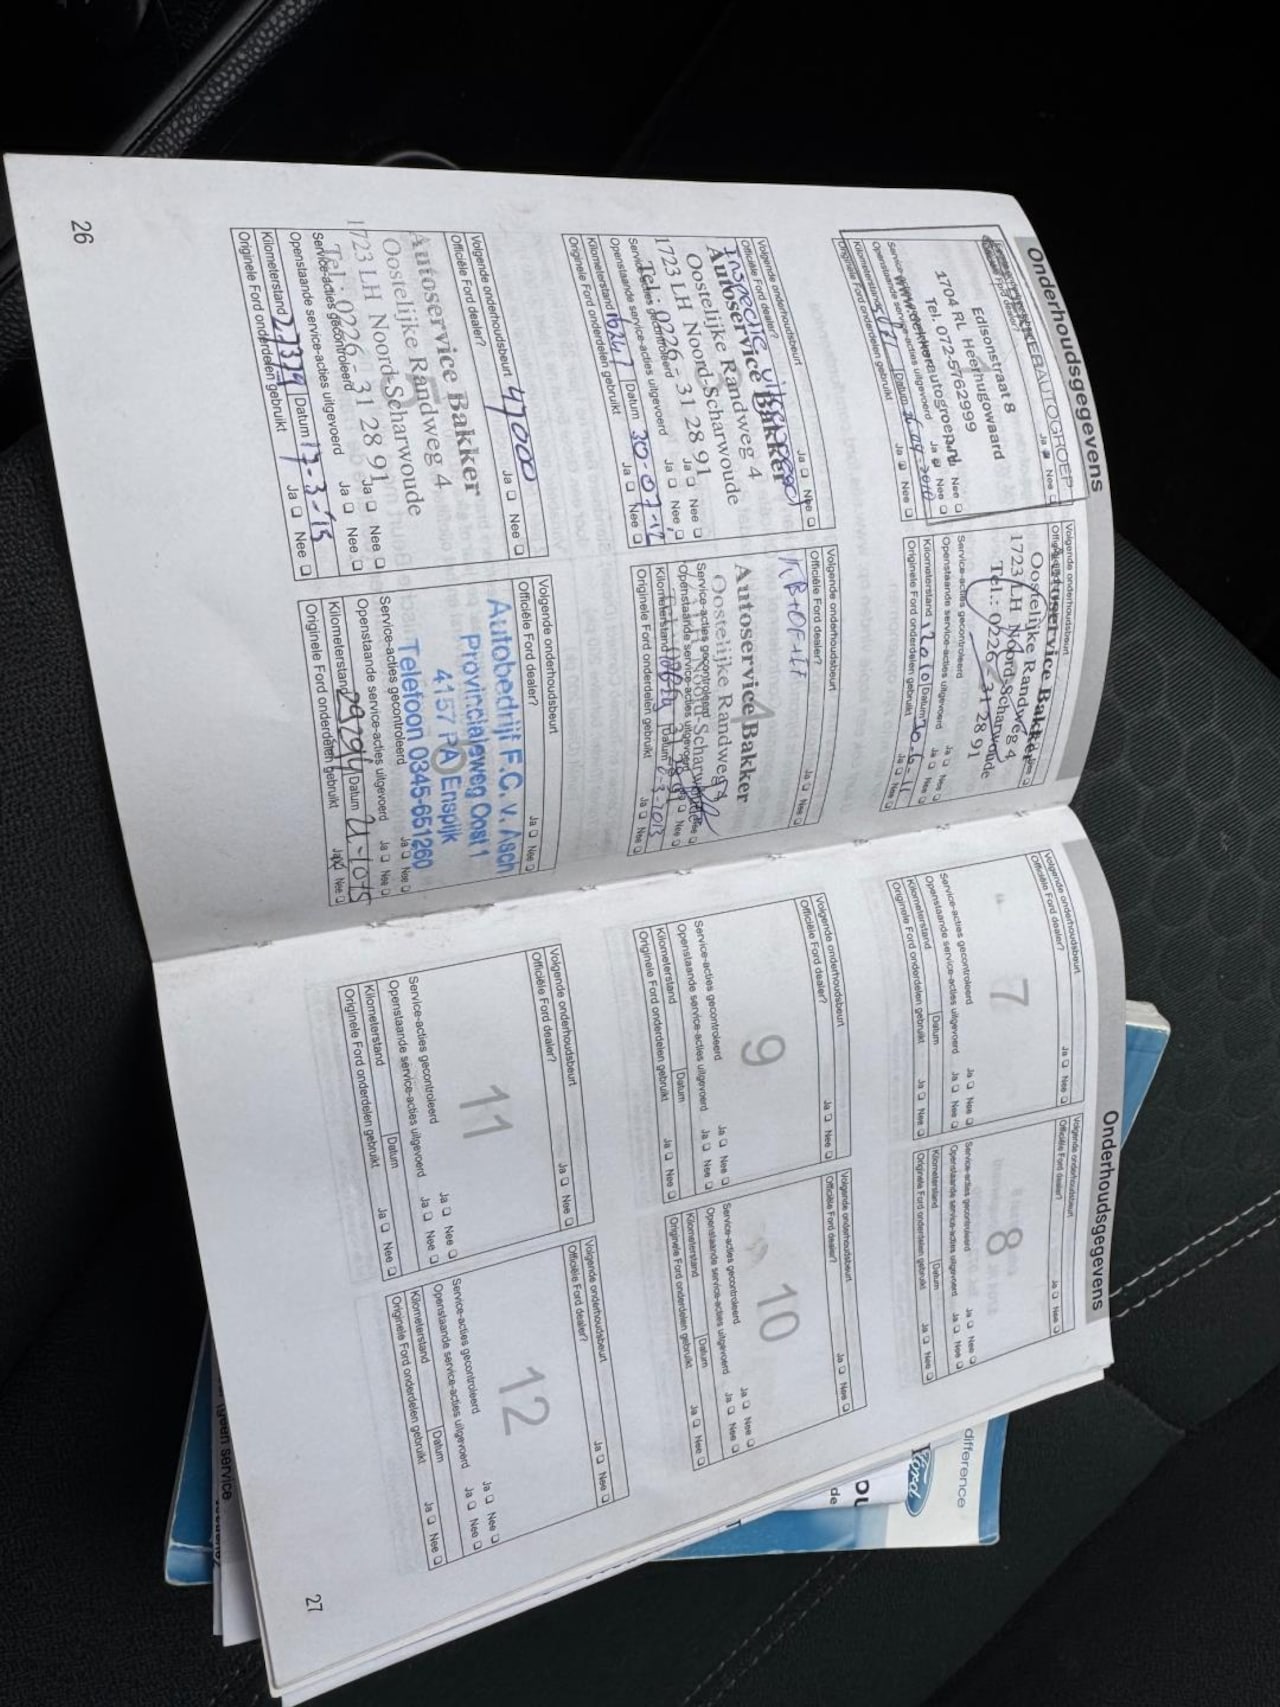 Onderhoudsgegevens
DEKKERAUTOGROEP
Ja Nee
Edisonstraat 8
1704 RL Heerhugowaard
Tel. 072-5762999
www.dekkerautogroep.nl
Openstaande service-acties uitgevoerd Ja Nee
Kilometerstand Datum
Originele Ford onderdelen gebruikt Ja Nee
Volgende onderhoudsbeurt
Autoservice Bakker
Oostelijke Randweg 4
1723 LH Noord-Scharwoude
Tel.: 0226-31 28 91
Service-acties gecontroleerd Ja Nee
Openstaande service-acties uitgevoerd Ja Nee
Kilometerstand 12010 Datum 30-6-11
Originele Ford onderdelen gebruikt Ja Nee
Volgende onderhoudsbeurt
Officiële Ford dealer? Ja Nee
Inspectie uitgevoerd
Autoservice Bakker
Oostelijke Randweg 4
1723 LH Noord-Scharwoude
Tel.: 0226-31 28 91
Service-acties gecontroleerd Ja Nee
Openstaande service-acties uitgevoerd Ja Nee
Kilometerstand 16247 Datum 30-07-12
Originele Ford onderdelen gebruikt Ja Nee
Volgende onderhoudsbeurt
Officiële Ford dealer? Ja Nee
4
Autoservice Bakker
Oostelijke Randweg 4
Service-acties gecontroleerd Ja Nee
Openstaande service-acties uitgevoerd Ja Nee
Kilometerstand Datum
Originele Ford onderdelen gebruikt Ja Nee
Volgende onderhoudsbeurt 47000
Officiële Ford dealer? Ja Nee
5
Autoservice Bakker
Oostelijke Randweg 4
1723 LH Noord-Scharwoude
Tel.: 0226-31 28 91
Service-acties gecontroleerd Ja Nee
Openstaande service-acties uitgevoerd Ja Nee
Kilometerstand 27379 Datum 17-3-'15
Originele Ford onderdelen gebruikt Ja Nee
Volgende onderhoudsbeurt
Officiële Ford dealer? Ja Nee
Autobedrijf F.C. v. Asch
Provincialeweg Oost 1
4157 PA Enspijk
Telefoon 0345-651260
Service-acties gecontroleerd Ja Nee
Openstaande service-acties uitgevoerd Ja Nee
Kilometerstand 29294 Datum
Originele Ford onderdelen gebruikt Ja Nee
26
Onderhoudsgegevens
Volgende onderhoudsbeurt
Officiële Ford dealer? Ja Nee
7
Service-acties gecontroleerd Ja Nee
Openstaande service-acties uitgevoerd Ja Nee
Kilometerstand Datum
Originele Ford onderdelen gebruikt Ja Nee
Volgende onderhoudsbeurt
Officiële Ford dealer? Ja Nee
8
Service-acties gecontroleerd Ja Nee
Openstaande service-acties uitgevoerd Ja Nee
Kilometerstand Datum
Originele Ford onderdelen gebruikt Ja Nee
Volgende onderhoudsbeurt
Officiële Ford dealer? Ja Nee
9
Service-acties gecontroleerd Ja Nee
Openstaande service-acties uitgevoerd Ja Nee
Kilometerstand Datum
Originele Ford onderdelen gebruikt Ja Nee
Volgende onderhoudsbeurt
Officiële Ford dealer? Ja Nee
10
Service-acties gecontroleerd Ja Nee
Openstaande service-acties uitgevoerd Ja Nee
Kilometerstand Datum
Originele Ford onderdelen gebruikt Ja Nee
Volgende onderhoudsbeurt
Officiële Ford dealer? Ja Nee
11
Service-acties gecontroleerd Ja Nee
Openstaande service-acties uitgevoerd Ja Nee
Kilometerstand Datum
Originele Ford onderdelen gebruikt Ja Nee
Volgende onderhoudsbeurt
Officiële Ford dealer? Ja Nee
12
Service-acties gecontroleerd Ja Nee
Openstaande service-acties uitgevoerd Ja Nee
Kilometerstand Datum
Originele Ford onderdelen gebruikt Ja Nee
27
difference
Ford
de
geen service